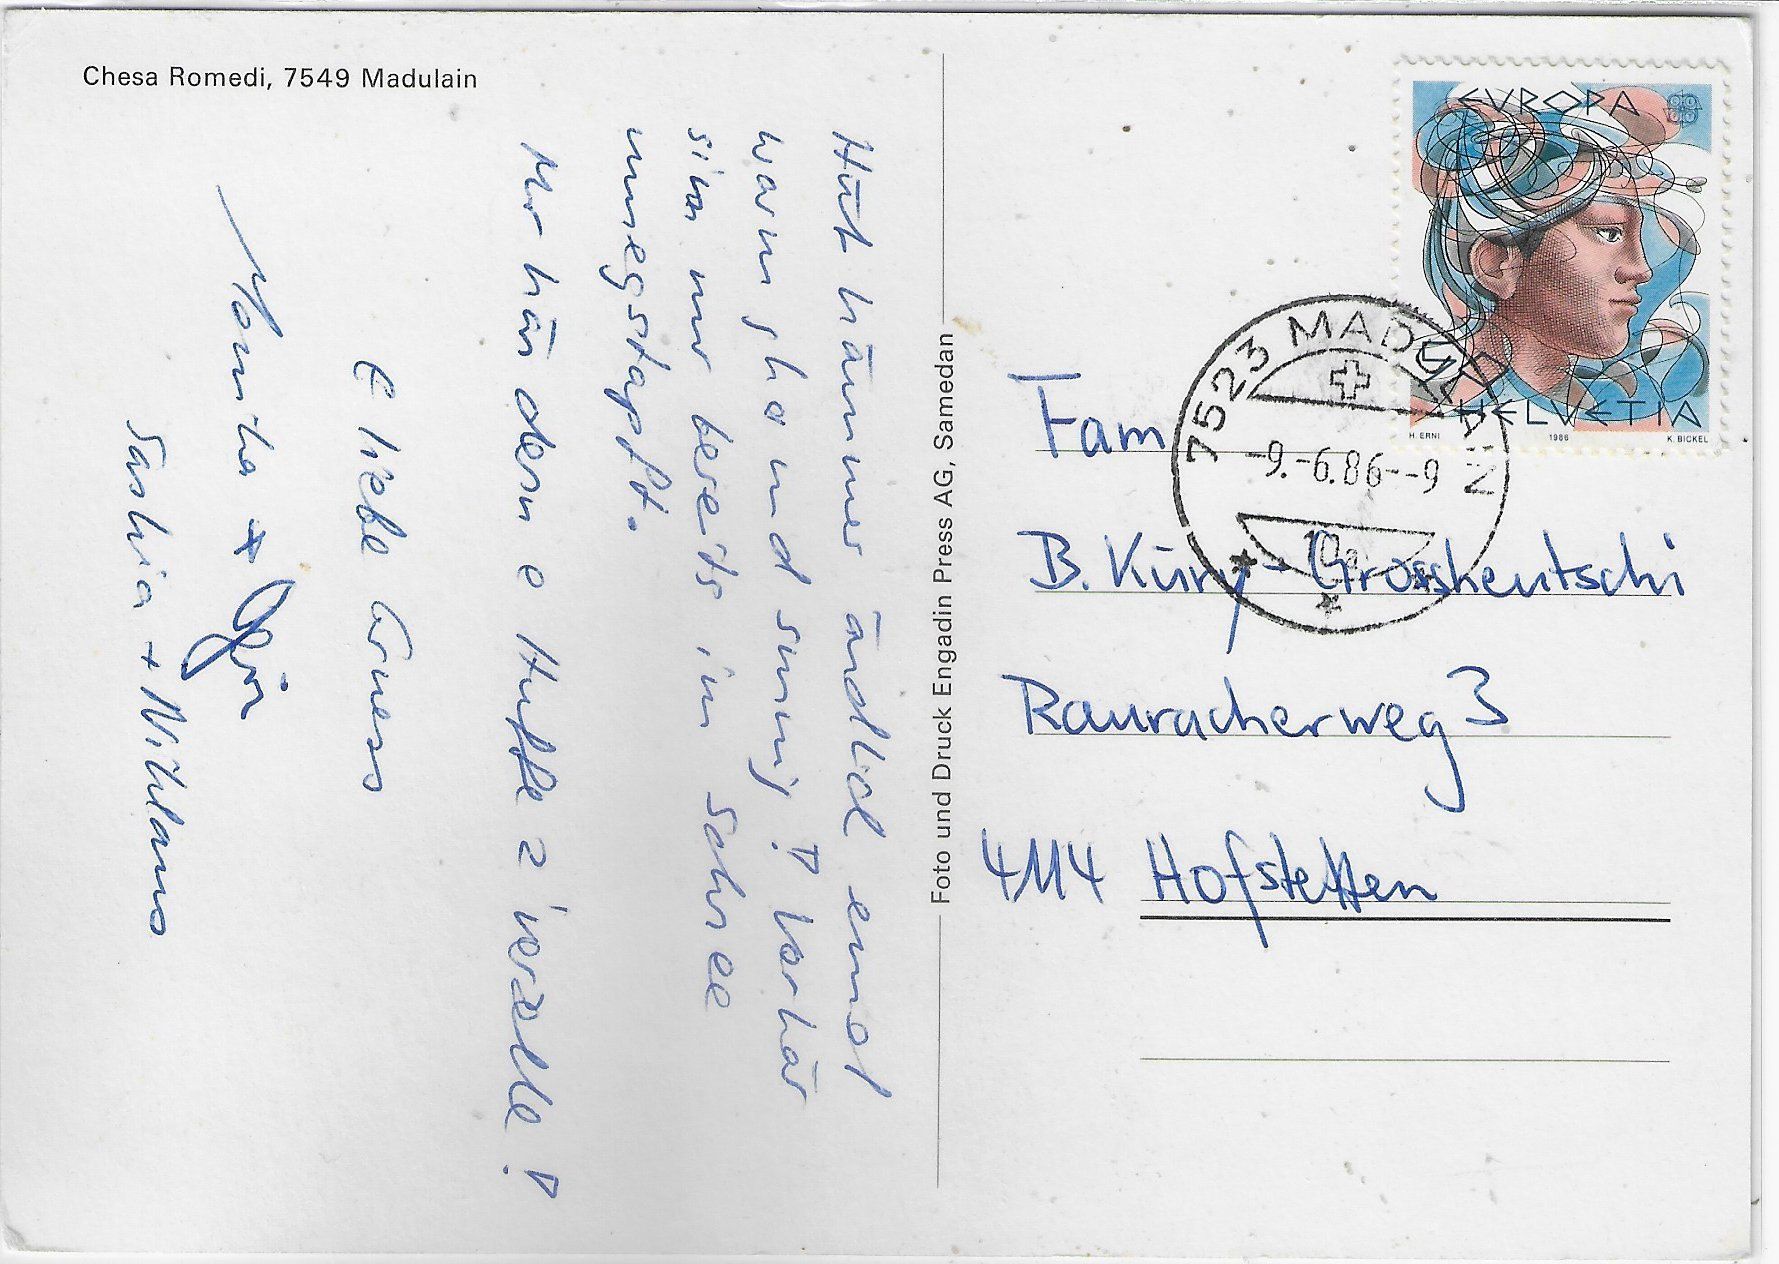 Chesa Romedi, 7549 Madulain
Hüt hämmer ändlich emol
warm gha und sunnig! Vorhär
sim mr bereits im Schnee
umegstapft.
Mr hän dern e Huffe z'verzelle!
E liebe Gruess
Monika +
Saskia + Niklaus
Foto und Druck Engadin Press AG, Samedan
EVROPA
HELVETIA
H. ERNI 1986 K. BICKEL
7523 MADULAIN
-9.-6.86--9
10a
Fam
B. Küry-Grossheutschi
Rauracherweg 3
4114 Hofstetten